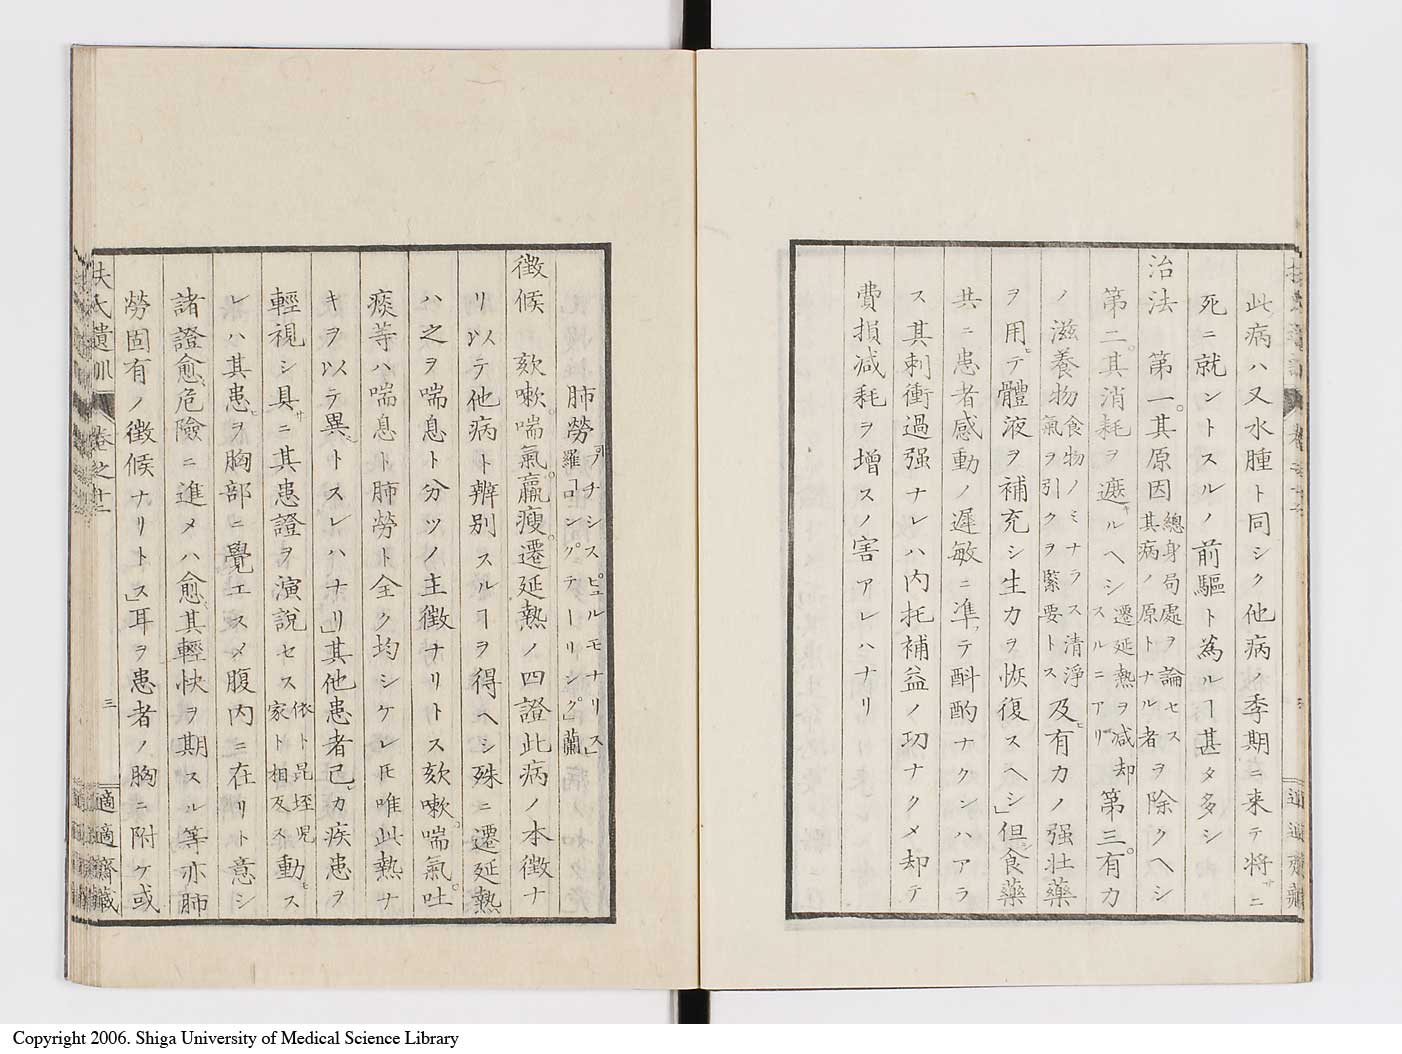 此病ハ又水腫ト同シク他病ノ季期ニ来テ将ニ
死ニ就ントスルノ前驅ト為ルヿ甚タ多シ
治法 第一其原因總身局處ヲ論セス其病ノ原トナル者ヲ除クヘシ
第二其消耗ヲ遮ルヘシ遷延熱ヲ減却スルニアリ第三有力
ノ滋養物食物ノミナラス清淨氣ヲ引クヲ緊要トス及有力ノ强壮藥
ヲ用テ體液ヲ補充シ生力ヲ恢復スヘシ」但食藥
共ニ患者感動ノ遲敏ニ準テ斟酌ナクンハアラ
ス其刺衝過强ナレハ内托補益ノ功ナクメ却テ
費損減耗ヲ增スノ害アレハナリ
扶氏遺訓 卷之十三
三
適適齋藏
肺勞「プチシスピュルモナリス」羅「ロングテーリング」蘭
徴候 欬嗽喘氣羸瘦遷延熱ノ四證此病ノ本徴ナ
リ以テ他病ト辨別スルヿヲ得ヘシ殊ニ遷延熱
ハ之ヲ喘息ト分ツノ主徴ナリトス欬嗽喘氣吐
痰等ハ喘息ト肺勞ト全ク均シケレ𪜈唯此熱ナ
キヲ以テ異トスレハナリ」其他患者己カ疾患ヲ
輕視シ具ニ其患證ヲ演説セス依卜昆垤児家ト相反ス動ス
レハ其患ヲ胸部ニ覺エスメ腹内ニ在リト意シ
諸證愈危險ニ進メハ愈其輕快ヲ期スル等亦肺
勞固有ノ徴候ナリトス」耳ヲ患者ノ胸ニ附ケ或
Copyright 2006. Shiga University of Medical Science Library